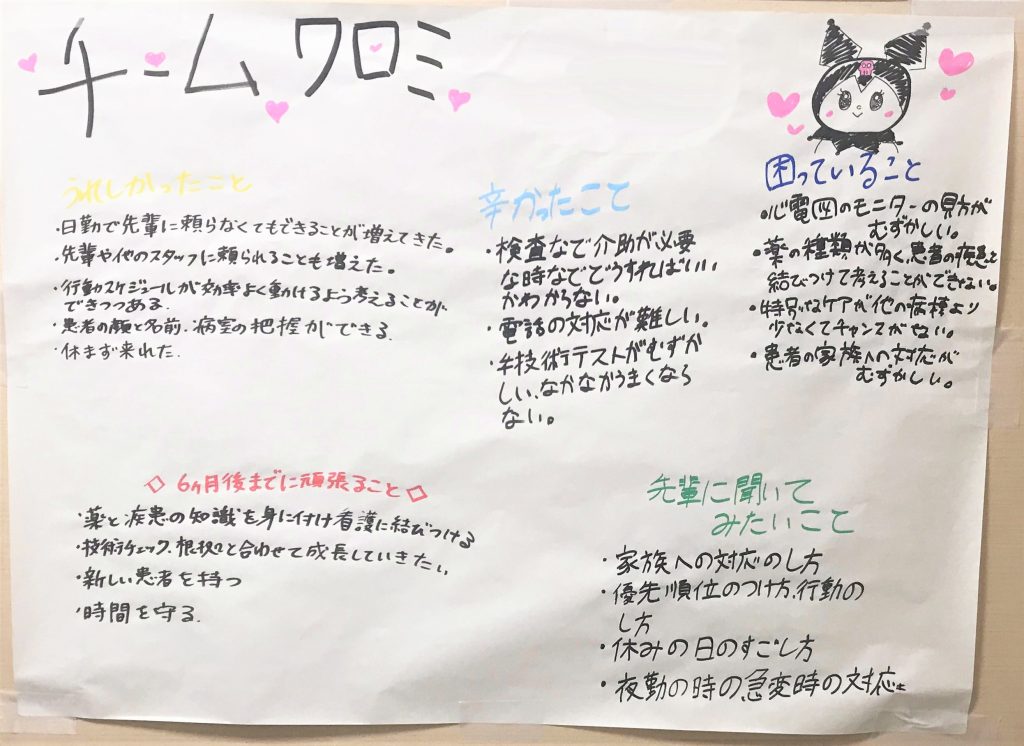 チームクロミ
うれしかったこと
・日勤で先輩に頼らなくてもできることが増えてきた。
・先輩や他のスタッフに頼られることも増えた。
・行動スケジュールが効率よく動けるよう考えることが
できつつある.
・患者の顔と名前、病室の把握ができる.
・休まず来れた.
辛かったこと
・検査などで介助が必要
な時などどうすればいい
かわからない。
・電話の対応が難しい。
・手技術テストがむずか
しい、なかなかうまくなら
ない。
困っていること
・心電図のモニターの見方が
むずかしい。
・薬の種類が多く、患者の疾患と
結びつけて考えることができない。
・特別なケアが他の病棟より
少なくてチャンスがない。
・患者の家族への対応が
むずかしい。
◇ 6ヶ月後までに頑張ること ◇
・薬と疾患の知識を身に付け看護に結びつける
・技術チェック、根拠と合わせて成長していきたい
・新しい患者を持つ
・時間を守る.
先輩に聞いて
みたいこと
・家族への対応のし方
・優先順位のつけ方、行動の
し方
・休みの日のすごし方
・夜勤の時の、急変時の対応